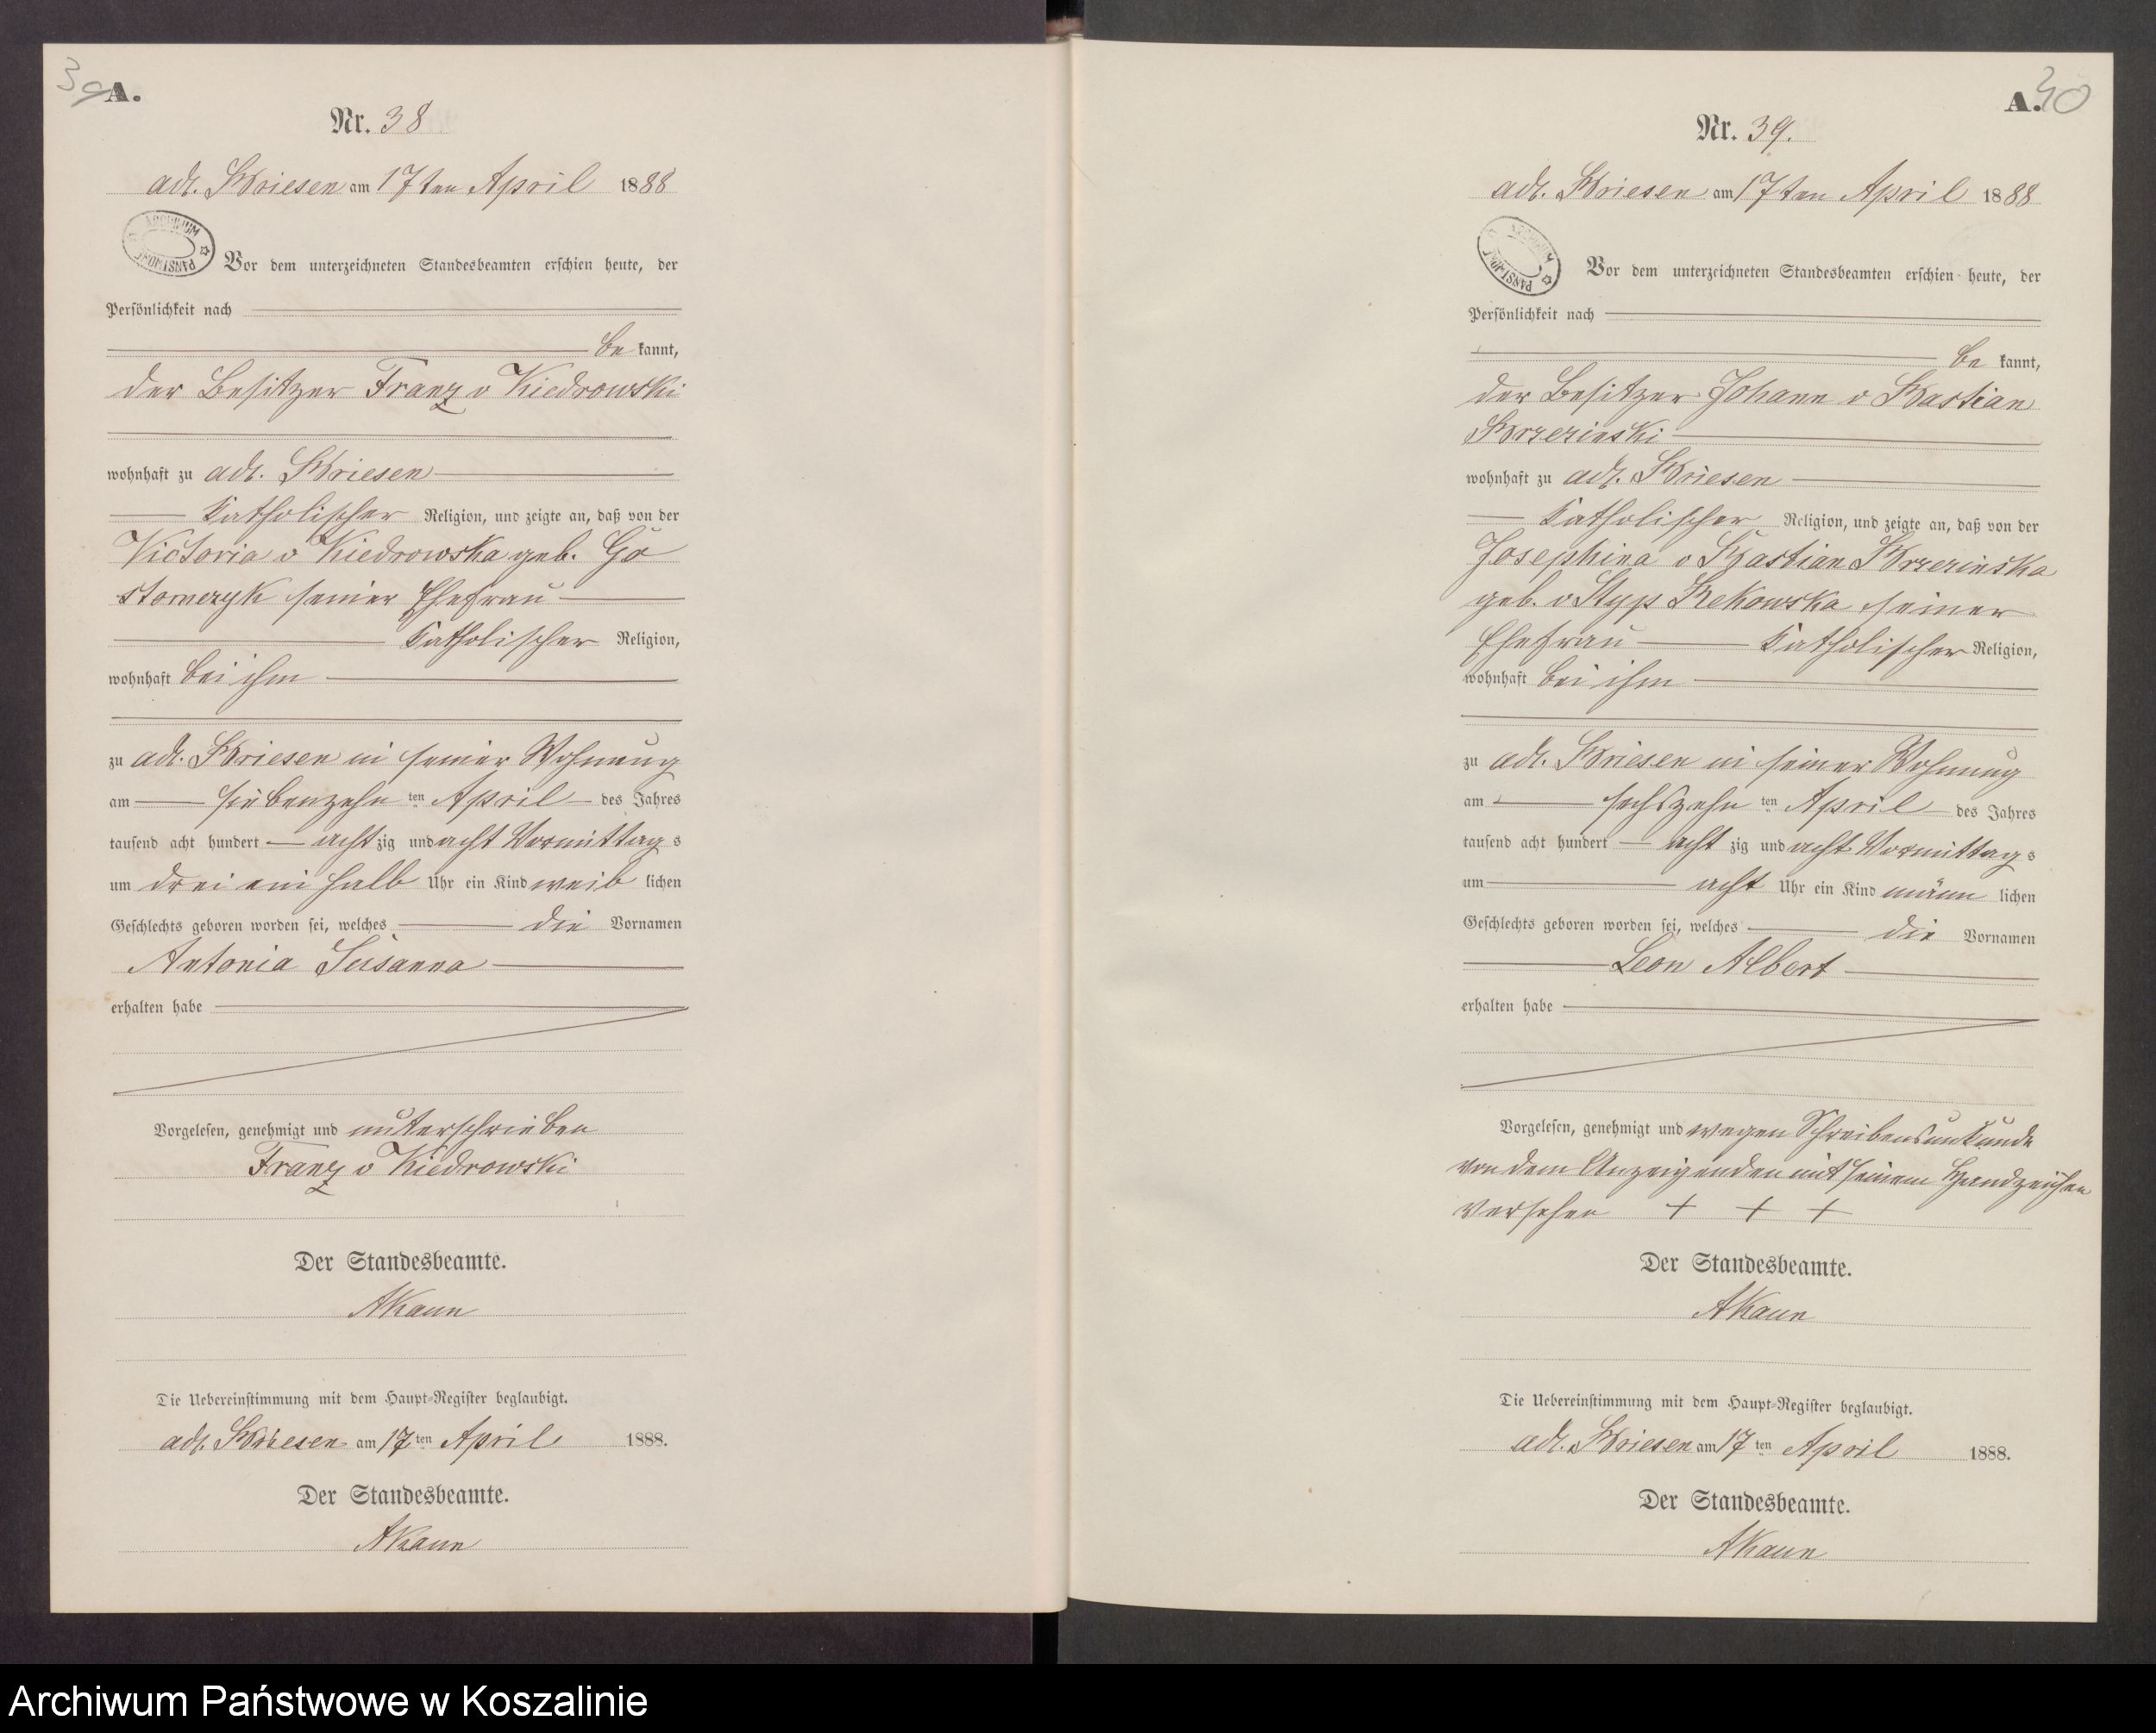 39
A.
Nr. 38
adl. Briesen am 17ten April 1888
ARCHIWUM PAŃSTWOWE
Vor dem unterzeichneten Standesbeamten erschien heute, der
Persönlichkeit nach
be kannt,
der Besitzer Franz v Kiedrowski
wohnhaft zu adl. Briesen
katholischer Religion, und zeigte an, daß von der
Victoria v Kiedrowska geb. Go
stomczyk seiner Ehefrau
katholischer Religion,
wohnhaft bei ihm
zu adl. Briesen in seiner Wohnung
am siebenzehn ten April des Jahres
tausend acht hundert acht zig und acht Vormittag s
um drei ein halb Uhr ein Kind weib lichen
Geschlechts geboren worden sei, welches die Vornamen
Antonia Susanna
erhalten habe
Vorgelesen, genehmigt und unterschrieben
Franz v Kiedrowski
Der Standesbeamte.
AKaun
Die Uebereinstimmung mit dem Haupt-Register beglaubigt.
adl. Briesen am 17ten April 1888.
Der Standesbeamte.
AKaun
A.
40
Nr. 39.
adl. Briesen am 17ten April 1888
ARCHIWUM PAŃSTWOWE
Vor dem unterzeichneten Standesbeamten erschien heute, der
Persönlichkeit nach
be kannt,
der Besitzer Johann v Bastian
Brzezinski
wohnhaft zu adl. Briesen
katholischer Religion, und zeigte an, daß von der
Josephina v Bastian Brzezinska
geb. v Styp Rekowska seiner
Ehefrau katholischer Religion,
wohnhaft bei ihm
zu adl. Briesen in seiner Wohnung
am sechszehn ten April des Jahres
tausend acht hundert acht zig und acht Vormittag s
um acht Uhr ein Kind männ lichen
Geschlechts geboren worden sei, welches die Vornamen
Leon Albert
erhalten habe
Vorgelesen, genehmigt und wegen Schreibensunkunde
von dem Anzeigenden mit seinem Handzeichen
versehen + + +
Der Standesbeamte.
AKaun
Die Uebereinstimmung mit dem Haupt-Register beglaubigt.
adl. Briesen am 17ten April 1888.
Der Standesbeamte.
AKaun
Archiwum Państwowe w Koszalinie